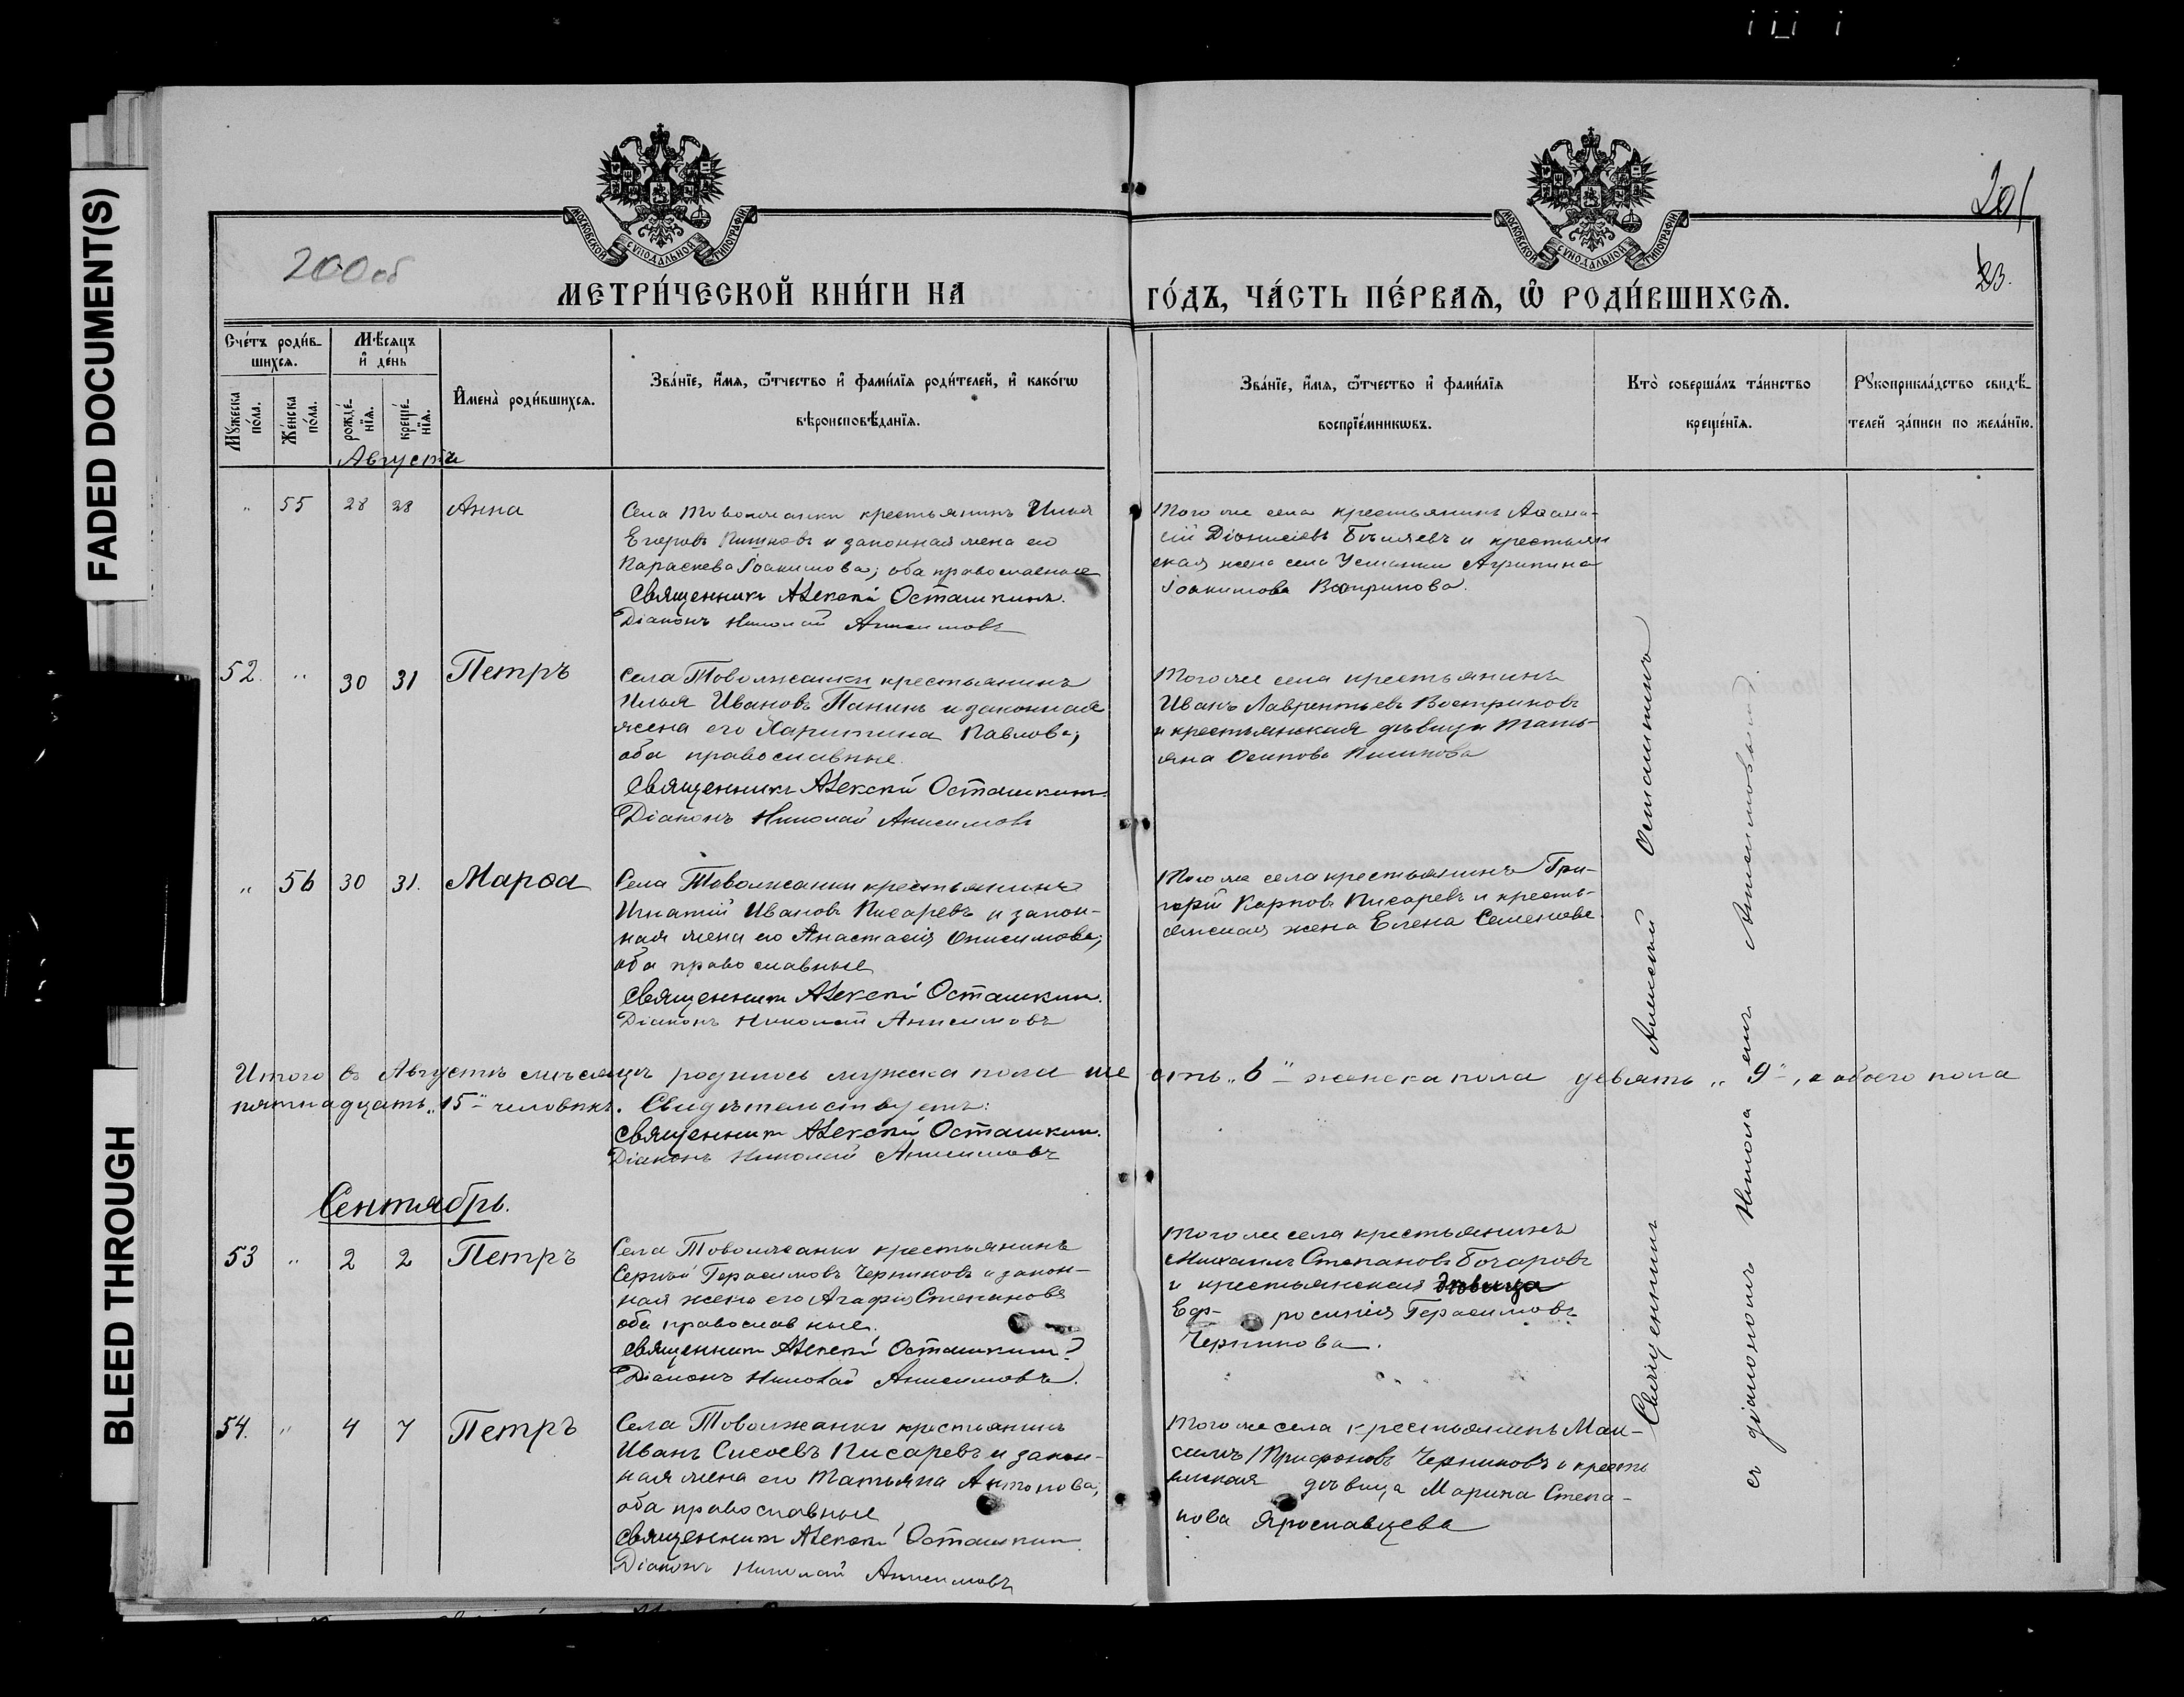 FADED DOCUMENT(S)
BLEED THROUGH
МОСКОВСКОЙ СѴНОДАЛЬНОЙ ТИПОГРАФІИ
МОСКОВСКОЙ СѴНОДАЛЬНОЙ ТИПОГРАФІИ
200 об
201
23.
МЕТРИ́ЧЕСКОЙ КНИ́ГИ НА
ГО́ДЪ, ЧА́СТЬ ПЕ́РВАѦ, Ѽ РОДИ́ВШИХСѦ.
Сче́тъ роди́в-
шихсѧ.
Мѣ́сяцъ
и҆ де́нь
Мꙋ́жеска
по́ла.
Же́нска
по́ла.
рожде́-
нїѧ.
креще́-
нїѧ.
И҆мена̀ роди́вшихсѧ.
Зва́нїе, и҆́мѧ, ѻ҆́тчество и҆ фами́лїѧ роди́телей, и҆ како́гѡ
вѣроисповѣ́данїѧ.
Зва́нїе, и҆́мѧ, ѻ҆́тчество и҆ фами́лїѧ
воспрїе́мникѡвъ.
Кто̀ соверша́лъ та́инство
креще́нїѧ.
Рꙋкоприкла́дство свидѣ́-
телей за́писи по жела́нїю.
Августъ
" 55 28 28 Анна
Села Товолжанки крестьянинъ Илья
Егоровъ и законная жена его
Параскева Іоакимова; оба православные
Священникъ Алексѣй Осташкинъ.
Діаконъ Николай Анисимовъ
Того же села крестьянинъ Аѳана-
сій Діонисіевъ Бѣляевъ и крестьян
ская жена села Усмани Агрипина
Іоакимова Вострикова.
52. " 30 31 Петръ
Села Товолжанки крестьянинъ
Илья Ивановъ Панинъ и законная
жена его Харитина Павлова;
оба православные.
Священникъ Алексѣй Осташкинъ.
Діаконъ Николай Анисимовъ
Того же села крестьянинъ
Иванъ Лаврентьевъ Востриковъ
и крестьянская дѣвица Тать-
яна Осипова
" 56 30 31. Марѳа
Села Товолжанки крестьянинъ
Игнатій Ивановъ Писаревъ и закон-
ная жена его Анастасія Онисимова;
оба православные
Священникъ Алексѣй Осташкинъ.
Діаконъ Николай Анисимовъ
Того же села крестьянинъ Гри-
горій Карповъ Писаревъ и кресть-
янская жена Елена Семенова
Итого въ Августѣ мѣсяцѣ родилось мужска пола шесть „6" женска пола девять „9", а обоего пола
пятнадцать „15" человѣкъ. Свидѣтельствуетъ:
Священникъ Алексѣй Осташкинъ.
Діаконъ Николай Анисимовъ
Сентябрь.
53 " 2 2 Петръ
Села Товолжанки крестьянинъ
Сергѣй Герасимовъ Черниковъ и закон-
ная жена его Агафія Степанова
оба православные.
Священникъ Алексѣй Осташкинъ
Діаконъ Николай Анисимовъ.
Того же села крестьянинъ
Михаилъ Степановъ Бочаровъ
и крестьянская дѣвица
Еф- росинія Герасимова
Черникова.
54. " 4 7 Петръ
Села Товолжанки крестьянинъ
Иванъ Сисоевъ Писаревъ и закон-
ная жена его Татьяна Антонова;
оба православные
Священникъ Алексѣй Осташкинъ
Діаконъ Николай Анисимовъ
Того же села крестьянинъ Мак-
симъ Трифоновъ Черниковъ и кресть
янская дѣвица Марина Степа-
нова Ярославцева
Священникъ Алексѣй Осташкинъ
съ діакономъ Николаемъ Анисимовымъ.